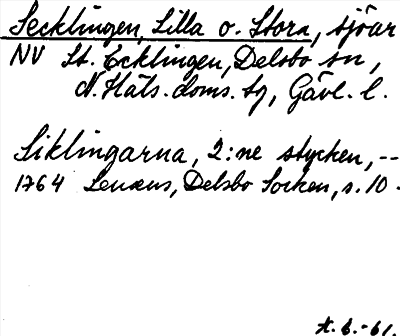 Secklingen, Lilla o. Stora, sjöar
NV St. Ecklingen, Delsbo sn,
N. Häls. doms. tg, Gävl. l.
Siklingarna, 2:ne stycken, --
1764 Lenæus, Delsbo Socken, s. 10.
A. 6.-61.